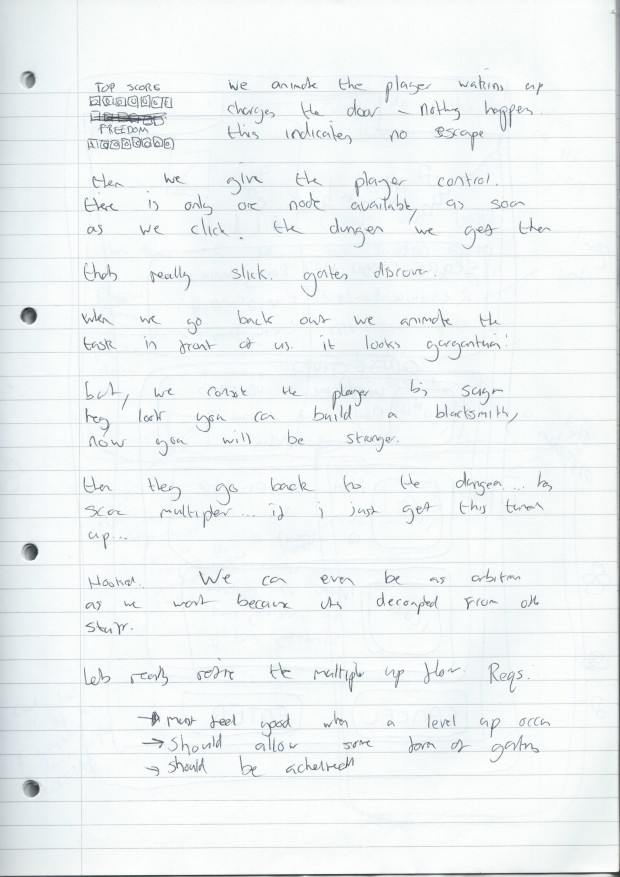 TOP SCORE
FREEDOM
we animate the player waking up
charges the door - nothing happens.
this indicates no escape
then we give the player control.
there is only one node available, as soon
as we click. the dungen we get then
thats really slick. gates discover.
when we go back out we animate the
task in front of us. it looks gargantuan!
but, we the player by sayn
hey look you can build a blacksmith,
now you will be stronger.
then they go back to the dungeon... by
score multiplier... if i just get this turned
up...
Hooked. We can even be as
as we want because its from oth
stuff.
Lets really refine the multiplier up flow. Reqs.
→ must feel good when a level up occu
→ should allow some form of
→ should be